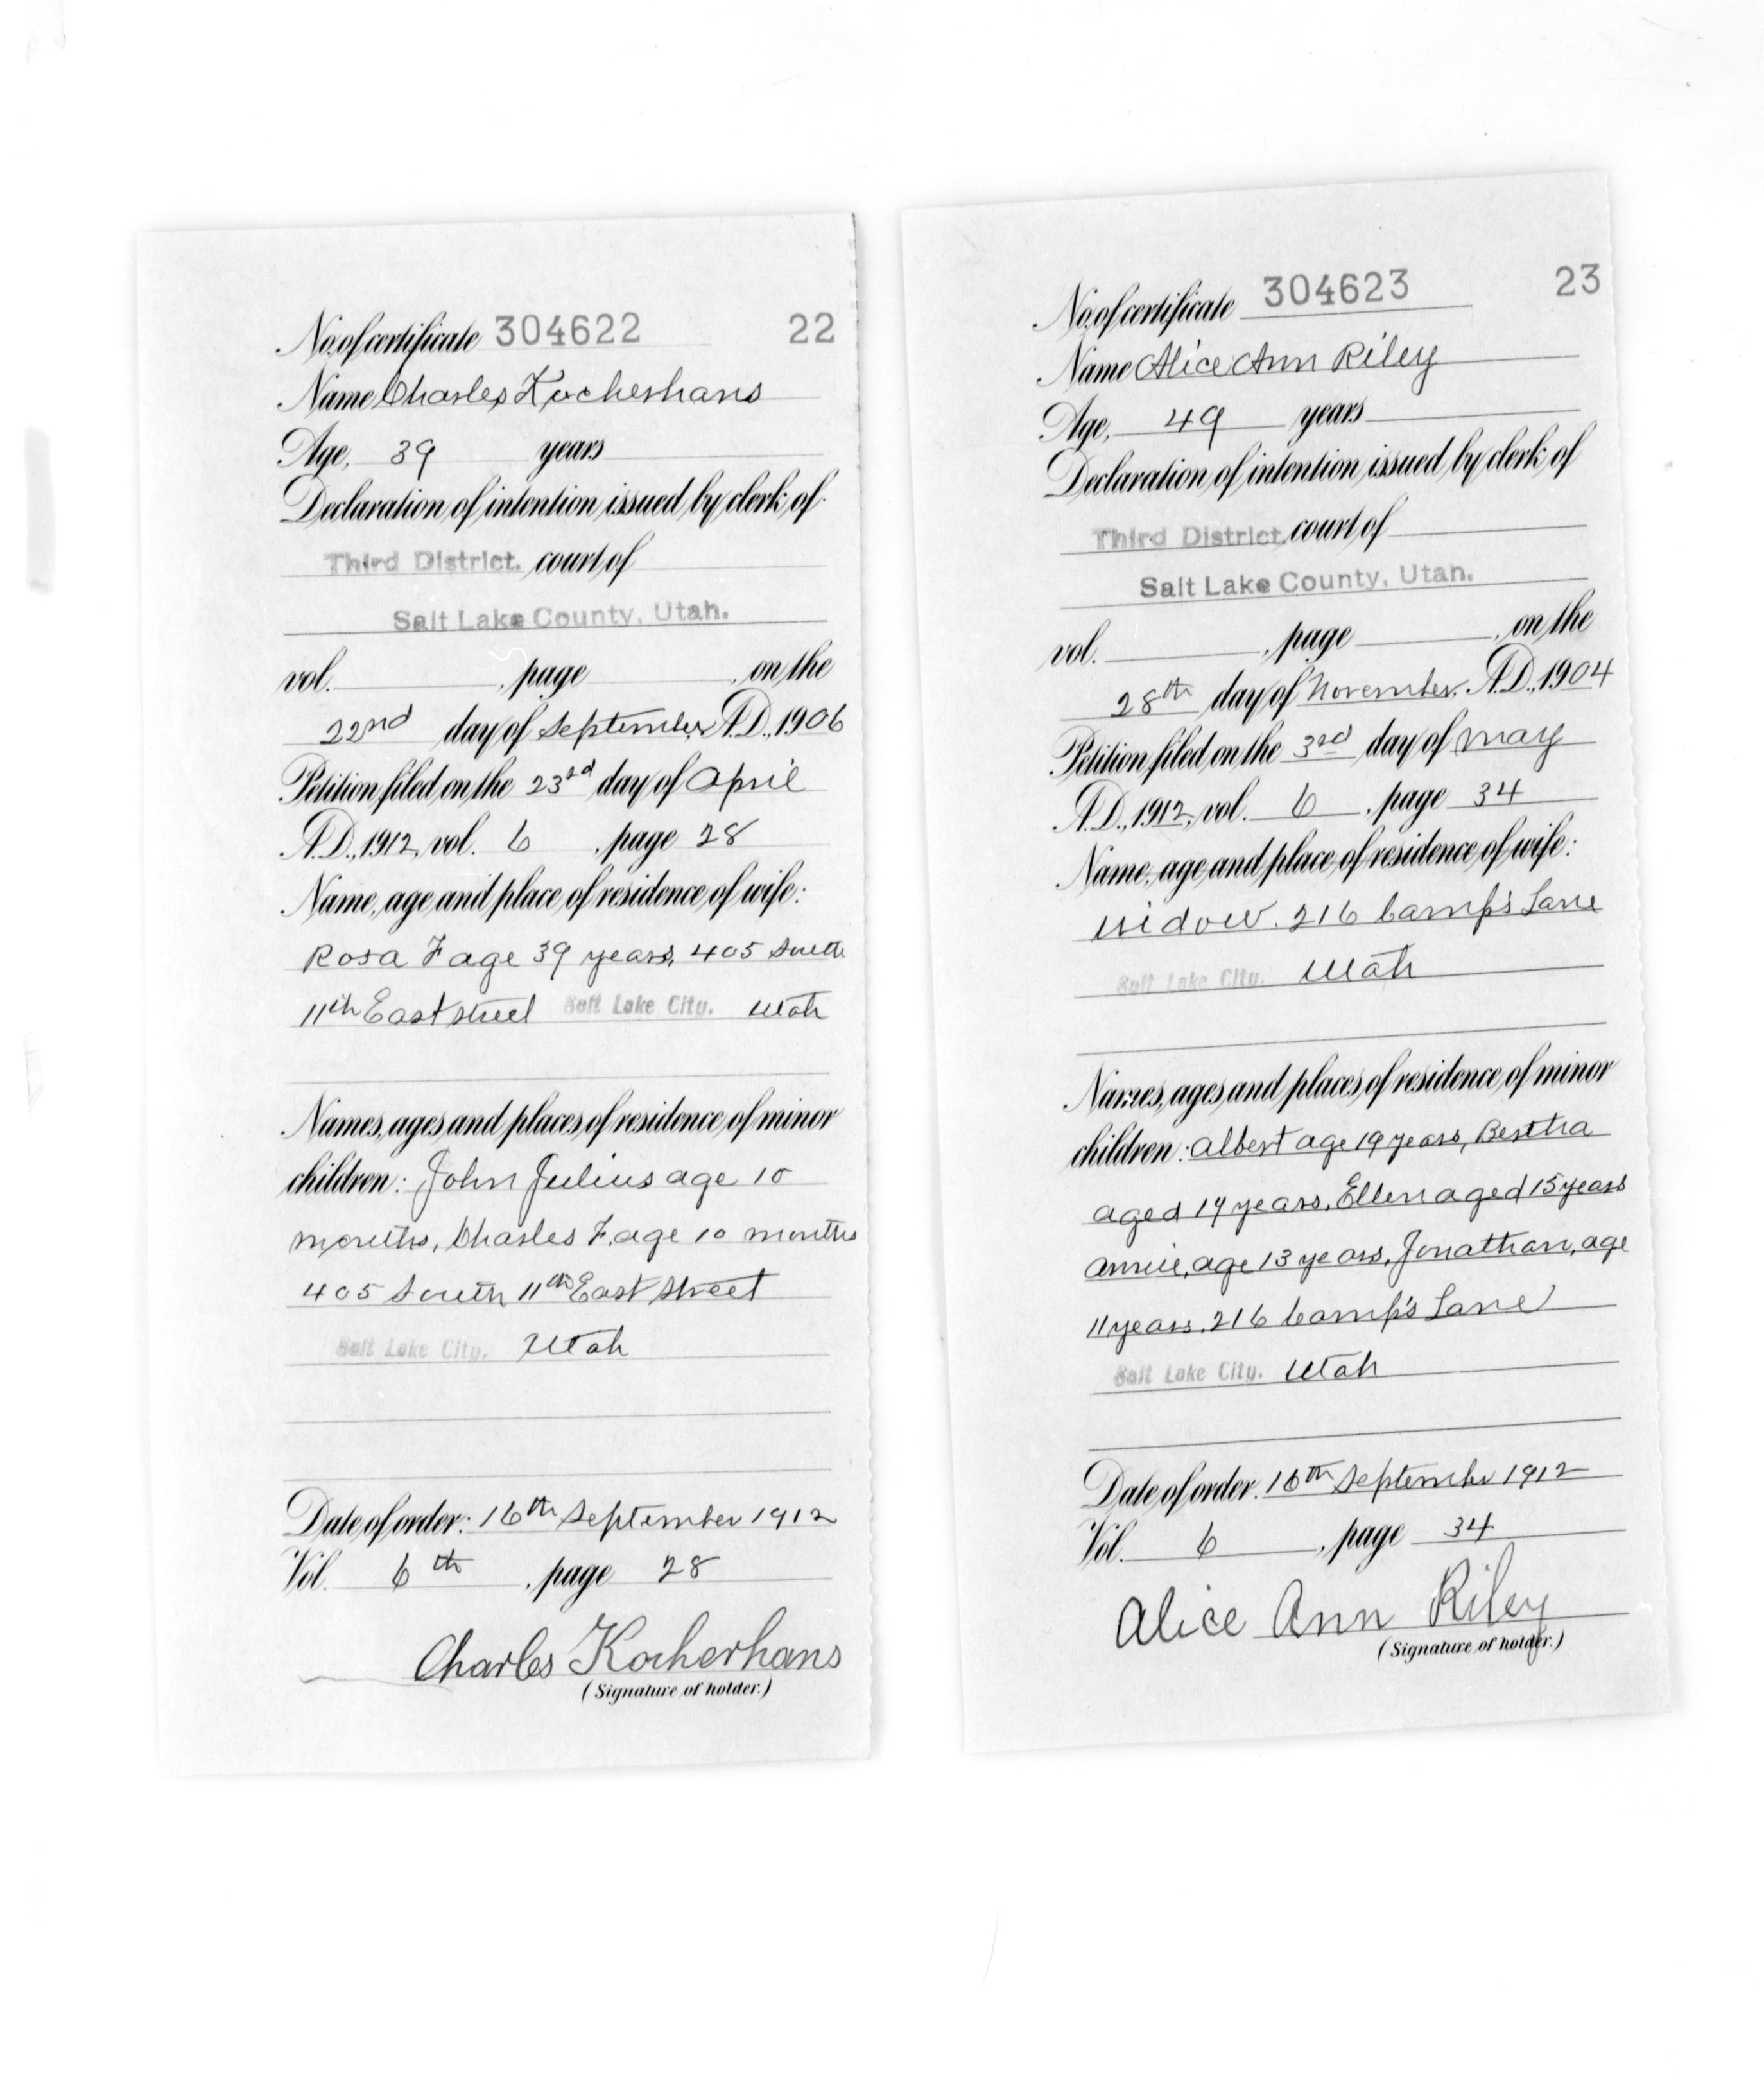 No. of certificate 304622 22
Name Charles Kocherhans
Age, 39 years
Declaration of intention issued by clerk of
Third District. court of
Salt Lake County, Utah.
vol. , page , on the
22nd day of September A.D., 1906
Petition filed on the 23rd day of April
A.D., 1912, vol. 6 , page 28
Name, age and place of residence of wife:
Rosa F age 39 years, 405 South
11th East street Salt Lake City. Utah
Names, ages and places of residence of minor
children: John Julius age 10
months, Charles F. age 10 months
405 South 11th East Street
Salt Lake City. Utah
Date of order: 16th September 1912
Vol. 6th , page 28
Charles Kocherhans
(Signature of holder.)
No. of certificate 304623 23
Name Alice Ann Riley
Age, 49 years
Declaration of intention issued by clerk of
Third District. court of
Salt Lake County, Utah.
vol. , page , on the
28th day of November. A.D., 1904
Petition filed on the 3rd day of May
A.D., 1912, vol. 6 , page 34
Name, age and place of residence of wife:
widow. 216 Camp's Lane
Salt Lake City. Utah
Names, ages and places of residence of minor
children: Albert age 19 years, Bertha
aged years, Ellen aged 15 years
Annie, age 13 years, Jonathan, age
11 years. 216 Camp's Lane
Salt Lake City. Utah
Date of order. 16th September 1912
Vol. 6 , page 34
Alice Ann Riley
(Signature of holder.)